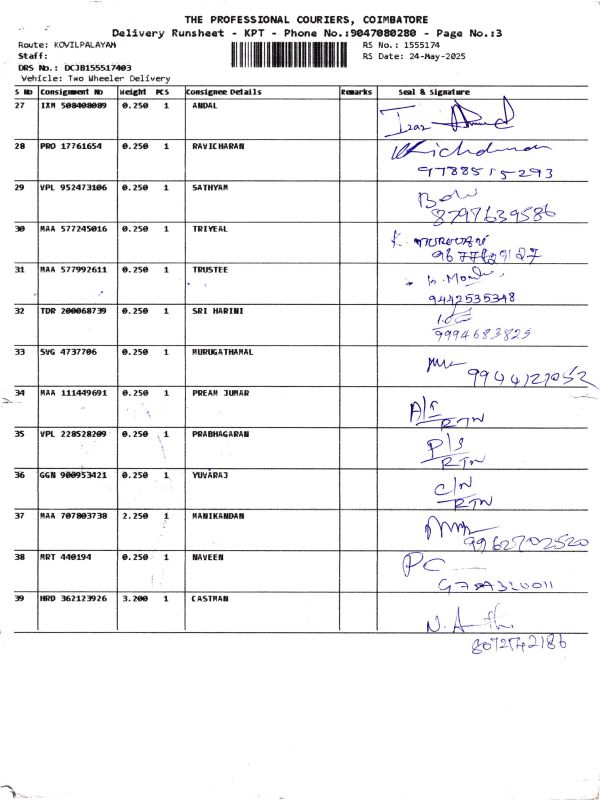 THE PROFESSIONAL COURIERS, COIMBATORE
Delivery Runsheet - KPT - Phone No.:9047080280 - Page No.:3
Route: KOVILPALAYAM RS No.: 1555174
Staff: RS Date: 24-May-2025
DRS No.: DCJB155517403
Vehicle: Two Wheeler Delivery
S No Consignment No Weight PCS Consignee Details Remarks Seal & Signature
27 IXM 508408089 0.250 1 ANDAL
28 PRO 17761654 0.250 1 RAVICHARAN
9788515293
29 VPL 952473106 0.250 1 SATHYAM
8797639586
30 MAA 577245016 0.250 1 TRIYEAL
K.
31 MAA 577992611 0.250 1 TRUSTEE
9442535348
32 TDR 200068739 0.250 1 SRI HARINI
9994683825
33 SVG 4737706 0.250 1 MURUGATHAMAL
9944121052
34 MAA 111449691 0.250 1 PREAM JUMAR
A/S
RTN
35 VPL 228528209 0.250 1 PRABHAGARAN
P/S
RTN
36 GGN 900953421 0.250 1 YUVARAJ
C/N
RTN
37 MAA 707803738 2.250 1 MANIKANDAN
9962702520
38 MRT 440194 0.250 1 NAVEEN
PC
39 HRD 362123926 3.200 1 CASTMAN
8072742186